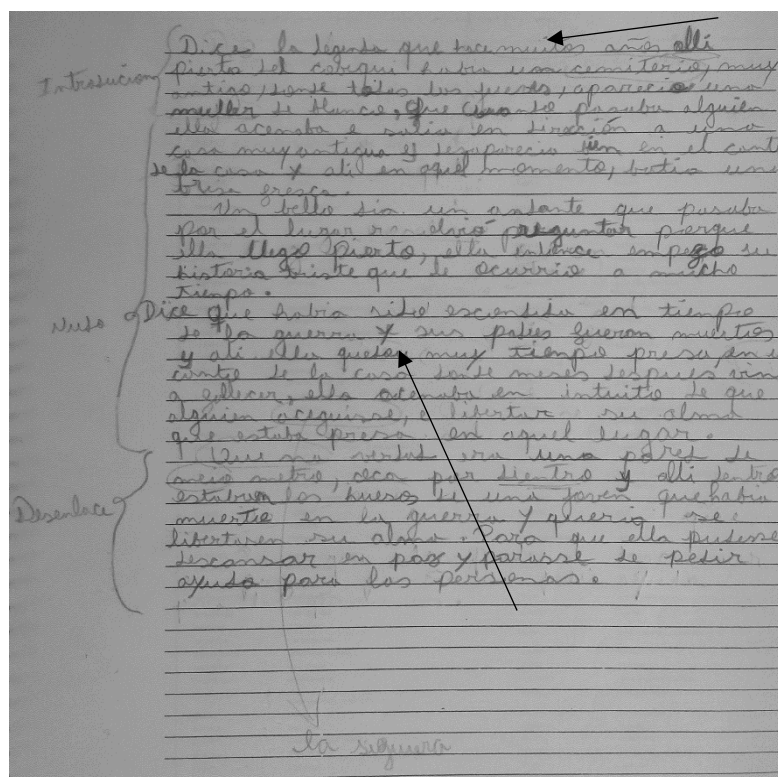 Dice la legenda que hace muitos años alli
Introducion
pierto del coriqui habia un cemiterio, muy
antigo, donde todos los jueves, aparecia una
muller de blanco, que cuando pasaba alguien
ella acenaba e salia en diración a una
casa muy antigua y desaparecia bien en el cant
de la casa y ali en aquel momento, batia una
brisa fresca.
Un bello dia un andante que pasaba
por el lugar resolvió preguntar porque
ella llego pierto, ella entonce empego su
historia triste que le ocurrio a mucho
tiempo.
Nudo
Dice que habia sido escondida en tiempo
de la guerra y sus padies fueron muertos
y ali ella quedou muy tiempo presa, en e
canto de la casa donde meses despues vin
a fallecer, ella acenaba en intuito de que
alguien aseguisse, e libertar su alma
que estaba presa, en aquel lugar.
Que na verdad era una pared de
meio metro, oca por dientro y alli dentro
Desenlace
estaban los huesos de una joven que habia
muertio en la guerra y queria se
libertasen su alma. Para que ella pudesse
descansar en paz y parasse de pedir
ayuda para las personas.
la siguiera